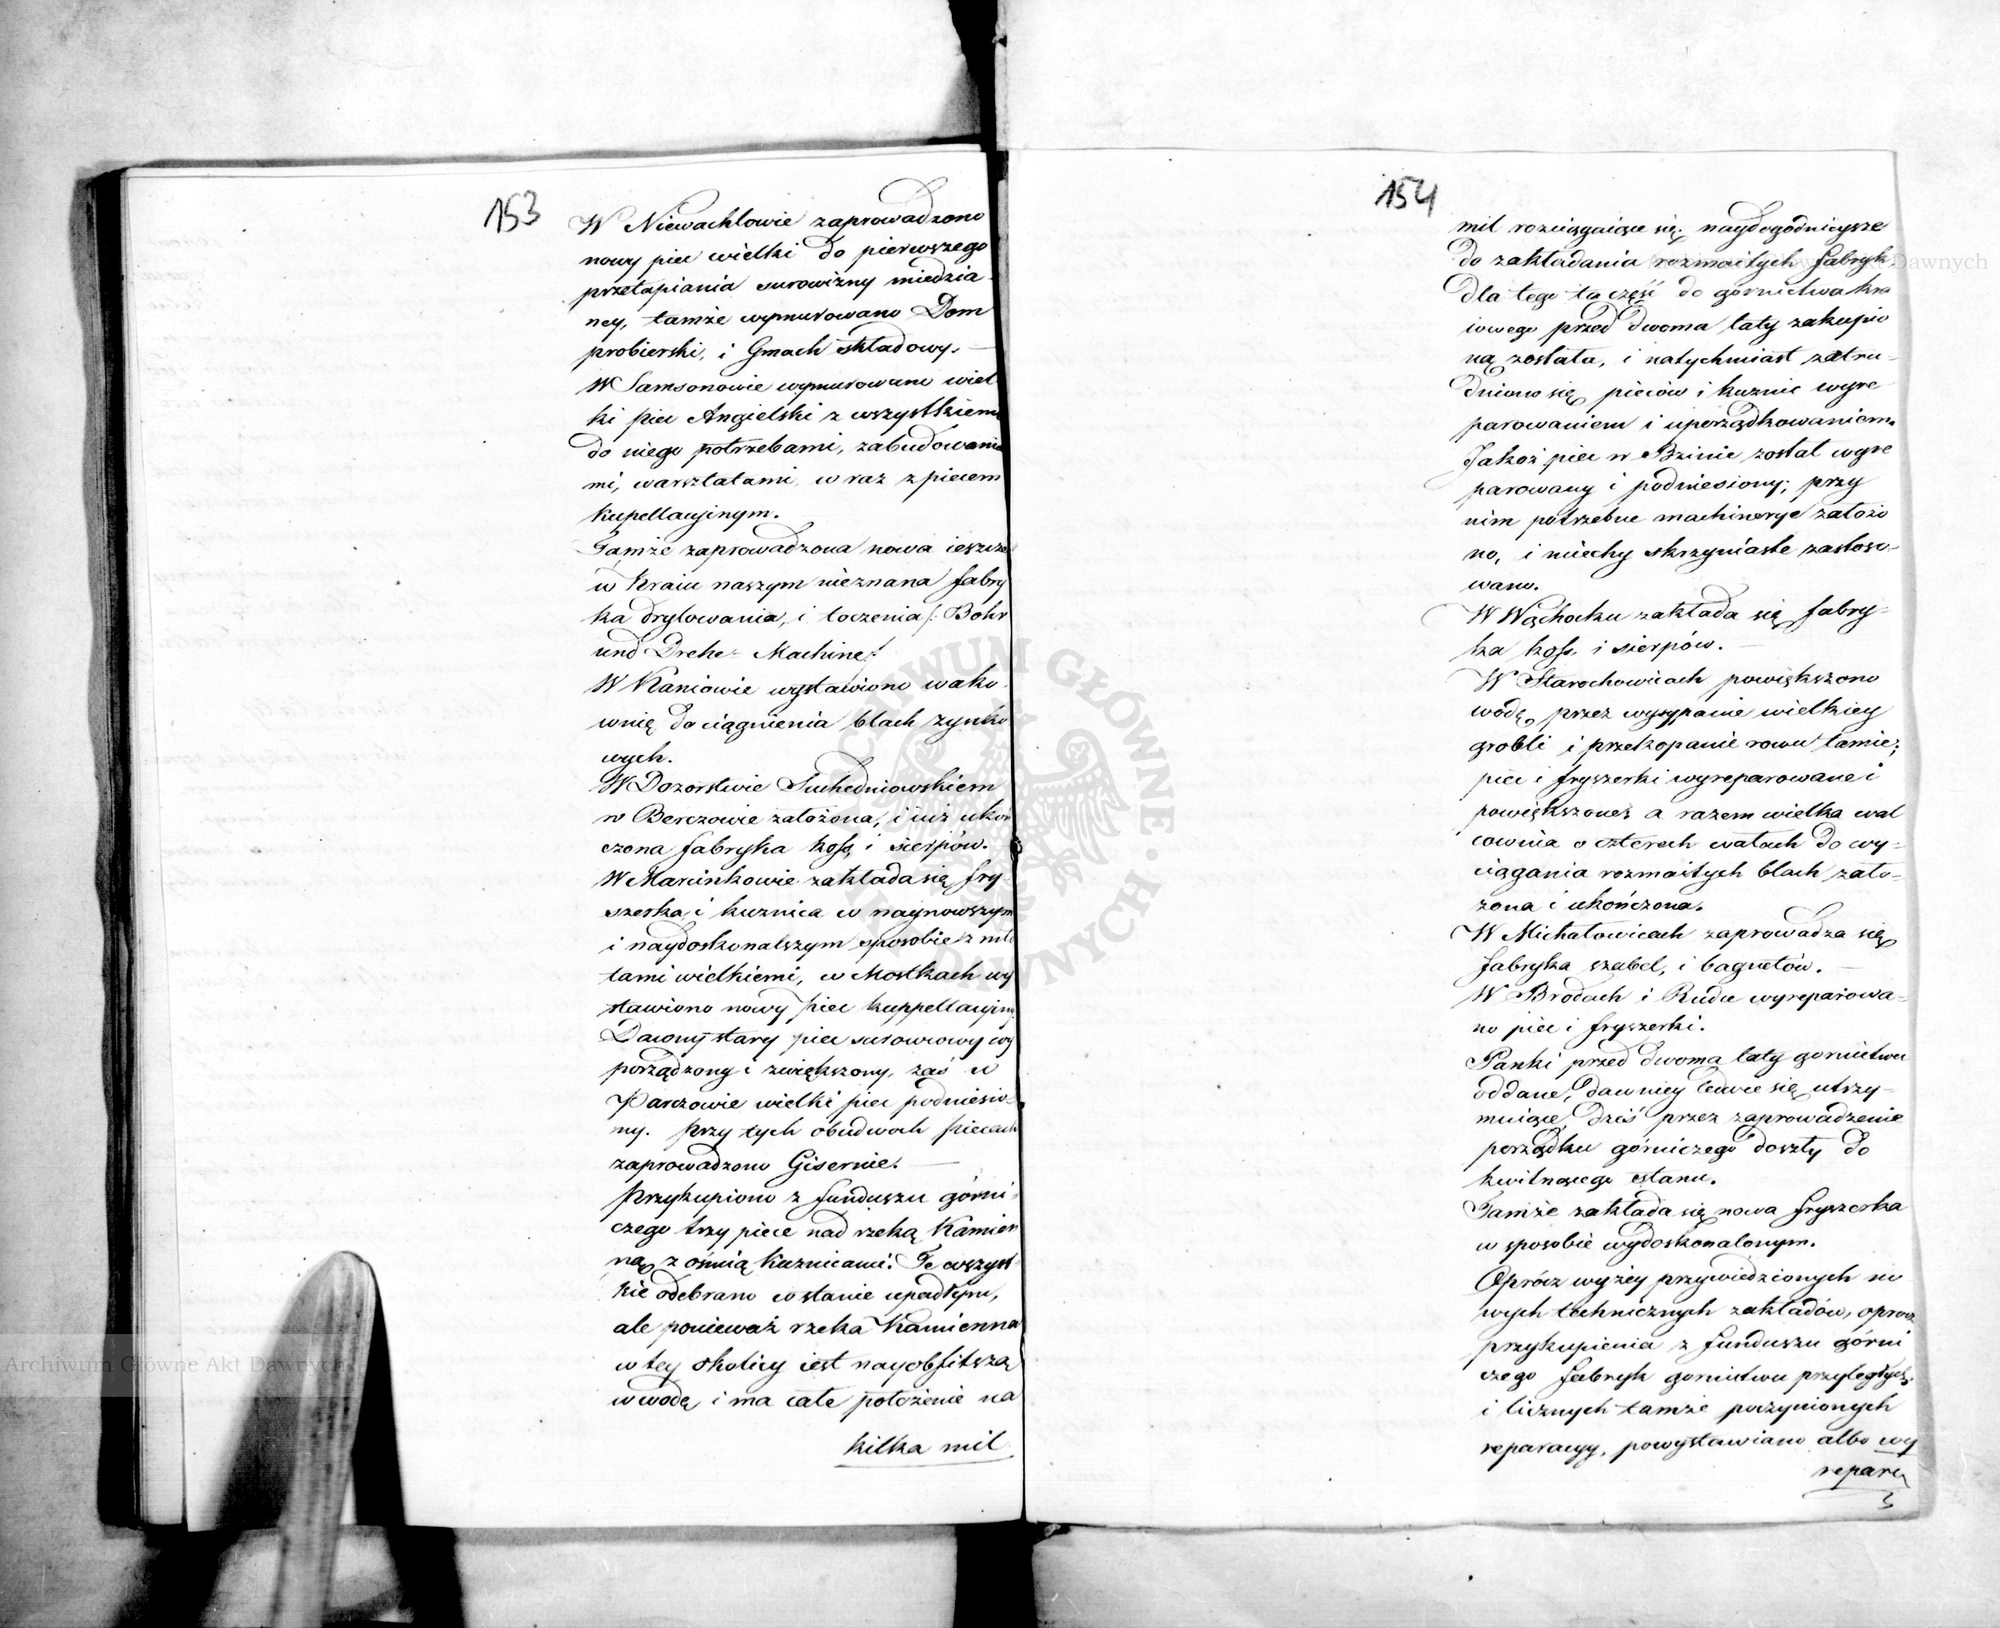 153
W Niewachlowie zaprowadzono
nowy piec wielki do pierwszego
przetapiania surowizny miedzia
ney, tamże wymurowano Dom
probierski, i Gmach składowy. —
W Samsonowie wymurowano wiel
ki piec Angielski z wszystkiemi
do niego potrzebami, zabudowania
mi, warsztatami, w raz z piecem
kupellacyinym.
Tamże zaprowadzona nowa ieszcze
w Kraiu naszym nieznana fabry
ka drylowania, i toczenia /: Bohr
und Drehe-Machine:/
W Kaniowie wystawiono walco
wnię do ciągnienia blach zynko
wych.
W Dozorstwie Suchedniowskiem
w Berezowie założona, i iuż ukoń
czona fabryka koss, i sierpów.
W Marcinkowie zakłada się fry
szerka i kuznica w naynowszym
i naydoskonalszym sposobie z mło
tami wielkiemi, w Mostkach wy
stawiono nowy piec kuppellacyiny.
Dawny stary piec surowcowy wy
porządzony i zwiększony, zaś w
Parszowie wielki piec podniesio-
ny. Przy tych obudwoch piecach
zaprowadzono Gisernie. —
Przykupiono z funduszu górni
czego trzy piece nad rzeką Kamien
ną, z ośmią kuznicami. Te wszyst
kie odebrano w stanie upadłym,
ale ponieważ rzeka Kamienna
w tey okolicy iest nayobfitszą
w wodę, i ma całe położenie na
kilka mil
154
mil rozciągaiące się, naydogodnieysze
do zakładania rozmaitych fabryk,
dla tego ta część do górnictwa kra
iowego przed dwoma laty zakupio
ną została, i natychmiast zatru-
dniono się, pieców i kuznic wyre-
parowaniem i uporządkowaniem.
Jakoż piec w Bzinie został wyre
parowany i podniesiony; przy
nim potrzebne machinerye założo
no, i miechy skrzyniaste zastoso-
wano.
W Wąchocku zakłada się fabry-
ka koss, i sierpów. —
W Starachowicach powiększono
wodę, przez wysypanie wielkiey
grobli i przekopanie rowu tamże;
piec i fryszerki wyreparowane i
powiększone, a razem wielka wal
cownia o czterech walach do wy-
ciągania rozmaitych blach zało-
żona i ukończona.
W Michałowicach zaprowadza się
fabryka szabel, i bagnetów. —
W Brodach i Rudce wyreparowa-
no piec i fryszerki.
Panki przed dwoma laty gornictwu
oddane, dawniey ledwie się utrzy-
muiące, dziś przez zaprowadzenie
porządku górniczego doszły do
kwitnącego stanu.
Tamże zakłada się nowa fryszerka
w sposobie wydoskonalonym.
Oprócz wyżey przywiedzionych no
wych technicznych zakładów, oprocz
przykupienia z funduszu górni
czego fabryk gornictwu przyległych,
i licznych tamże poczynionych
reparacyy, powystawiano albo wy
repare
Archiwum Główne Akt Dawnych
Archiwum Główne Akt Dawnych
ARCHIWUM GŁÓWNE AKT DAWNYCH